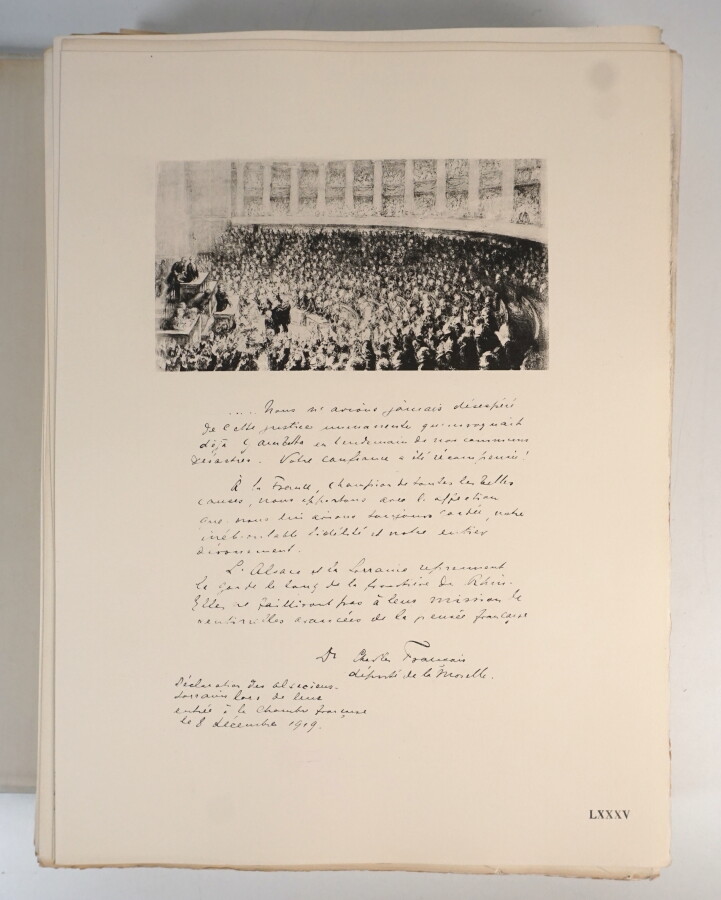 ..... Nous n'avions jamais désespéré
de cette justice immanente qu'invoquait
déjà Gambetta au lendemain de nos communs
désastres. Votre confiance a été récompensée!
À la France, champion de toutes les belles
causes, nous apportons avec l'affection
que nous lui avions toujours gardée, notre
inébranlable fidélité et notre entier
dévouement.
L'Alsace et la Lorraine reprennent
la garde le long de la frontière du Rhin.
Elles ne failliront pas à leur mission de
sentinelles avancées de la pensée française
Dr Charles François
député de la Moselle.
Déclaration des alsaciens-
lorrains lors de leur
entrée à la Chambre française
le 8 décembre 1919.
LXXXV